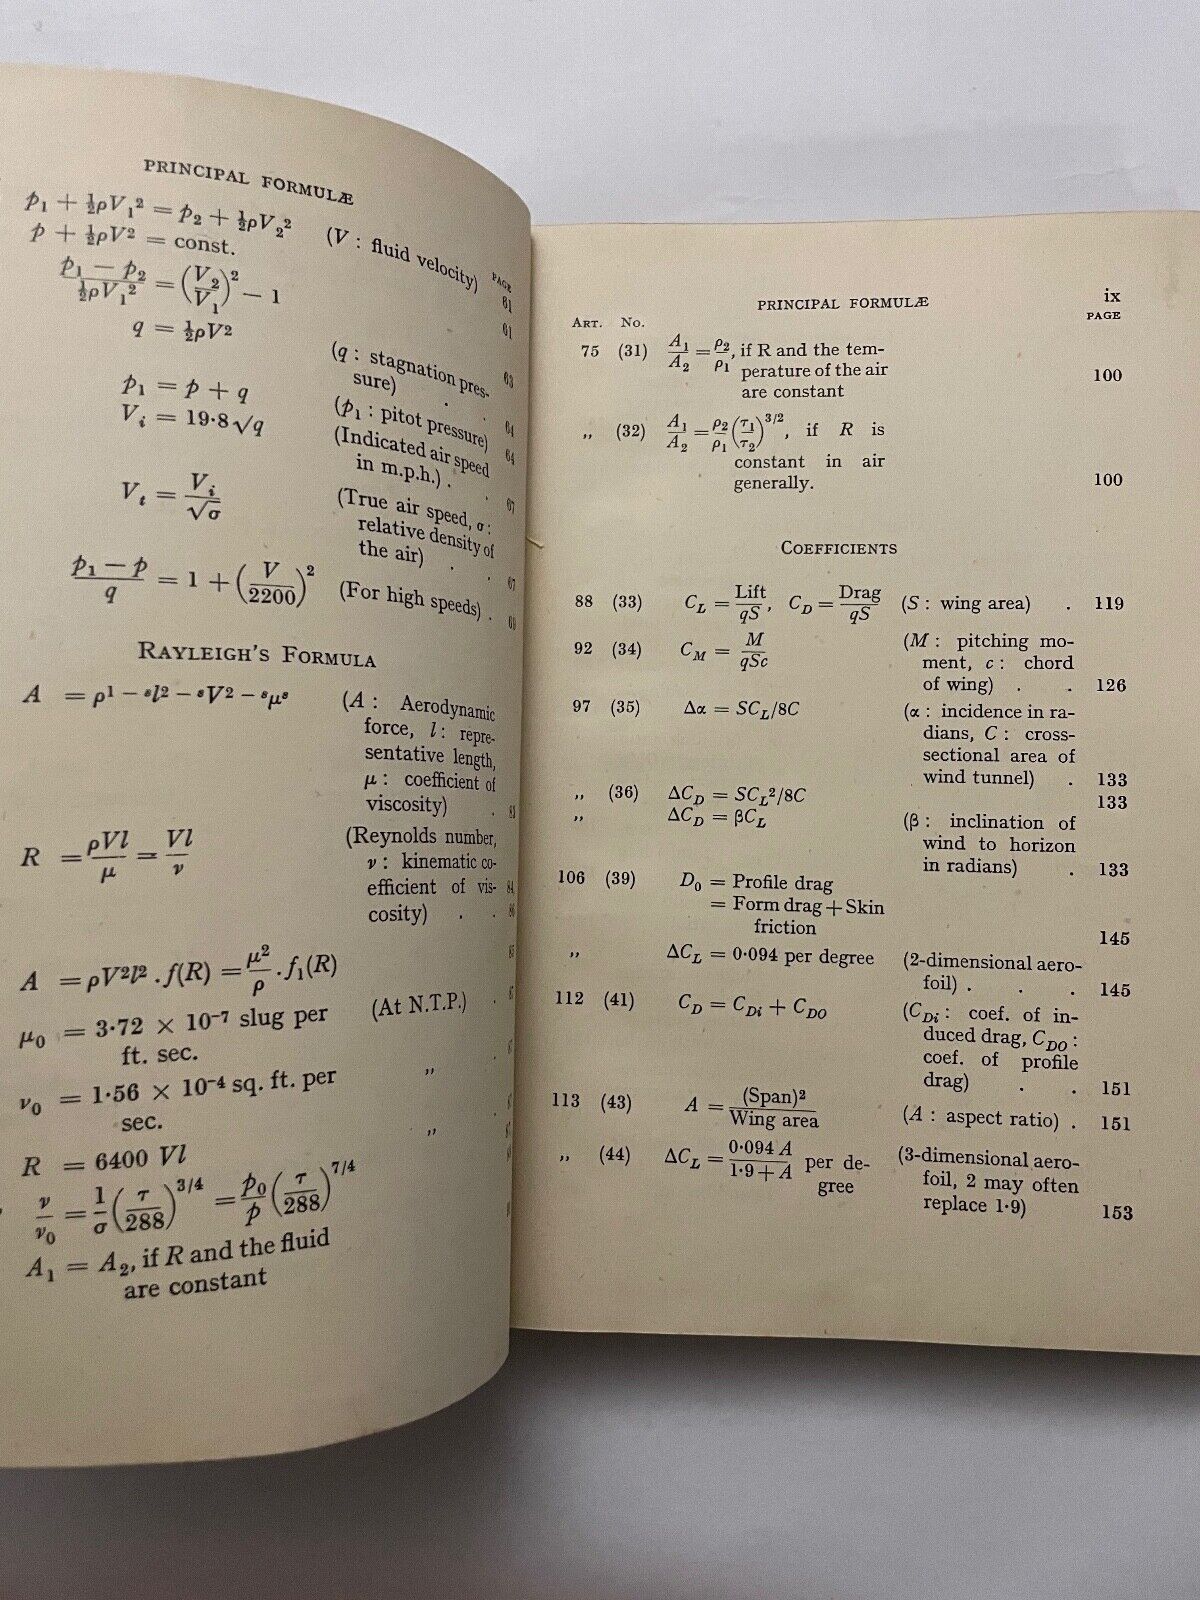 PRINCIPAL FORMULÆ
p₁ + ½ρV₁² = p₂ + ½ρV₂²
p + ½ρV² = const. (V : fluid velocity)
PAGE
(p₁ − p₂)/(½ρV₁²) = (V₂/V₁)² − 1 61
q = ½ρV² 61
(q : stagnation pres-
sure) . . 63
p₁ = p + q (p₁ : pitot pressure) 64
Vᵢ = 19·8√q (Indicated air speed 64
in m.p.h.) . . 67
Vₜ = Vᵢ/√σ (True air speed, σ :
relative density of
the air) . . 67
(p₁ − p)/q = 1 + (V/2200)² (For high speeds) . 69
RAYLEIGH'S FORMULA
A = ρ¹⁻ˢl²⁻ˢV²⁻ˢμˢ (A : Aerodynamic
force, l : repre-
sentative length,
μ : coefficient of
viscosity) . 83
R = ρVl/μ = Vl/ν (Reynolds number,
ν : kinematic co-
efficient of vis- 84
cosity) . . 86
A = ρV²l² . f(R) = μ²/ρ . f₁(R)
μ₀ = 3·72 × 10⁻⁷ slug per (At N.T.P.) .
ft. sec.
ν₀ = 1·56 × 10⁻⁴ sq. ft. per ,,
sec.
R = 6400 Vl ,,
ν/ν₀ = 1/σ (τ/288)^3/4 = p₀/p (τ/288)^7/4
A₁ = A₂, if R and the fluid
are constant
PRINCIPAL FORMULÆ ix
ART. No. PAGE
75 (31) A₁/A₂ = ρ₂/ρ₁, if R and the tem-
perature of the air
are constant 100
,, (32) A₁/A₂ = ρ₂/ρ₁ (τ₁/τ₂)^3/2, if R is
constant in air
generally. 100
COEFFICIENTS
88 (33) C_L = Lift/qS, C_D = Drag/qS (S : wing area) . 119
92 (34) C_M = M/qSc (M : pitching mo-
ment, c : chord
of wing) . . 126
97 (35) Δα = SC_L/8C (α : incidence in ra-
dians, C : cross-
sectional area of
wind tunnel) . 133
,, (36) ΔC_D = SC_L²/8C 133
,, ΔC_D = βC_L (β : inclination of
wind to horizon
in radians) . 133
106 (39) D₀ = Profile drag
= Form drag + Skin
friction 145
,, ΔC_L = 0·094 per degree (2-dimensional aero-
foil) . . . 145
112 (41) C_D = C_Di + C_DO (C_Di : coef. of in-
duced drag, C_DO :
coef. of profile
drag) . . 151
113 (43) A = (Span)²/Wing area (A : aspect ratio) . 151
,, (44) ΔC_L = 0·094 A/1·9 + A per de- (3-dimensional aero-
gree foil, 2 may often
replace 1·9) 153